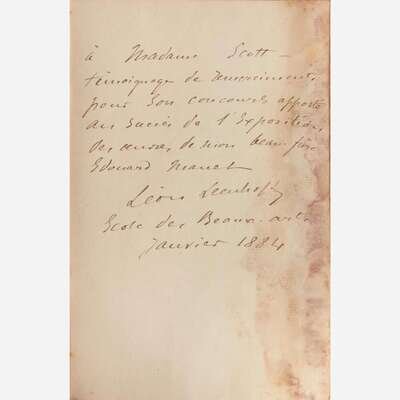 à Madame Scott –
témoignage de remerciments
pour son concours apporté
au succès de l'Exposition
des œuvres de mon beau frère
Edouard Manet
Léon Leenhoff
Ecole des Beaux-arts
Janvier 1884